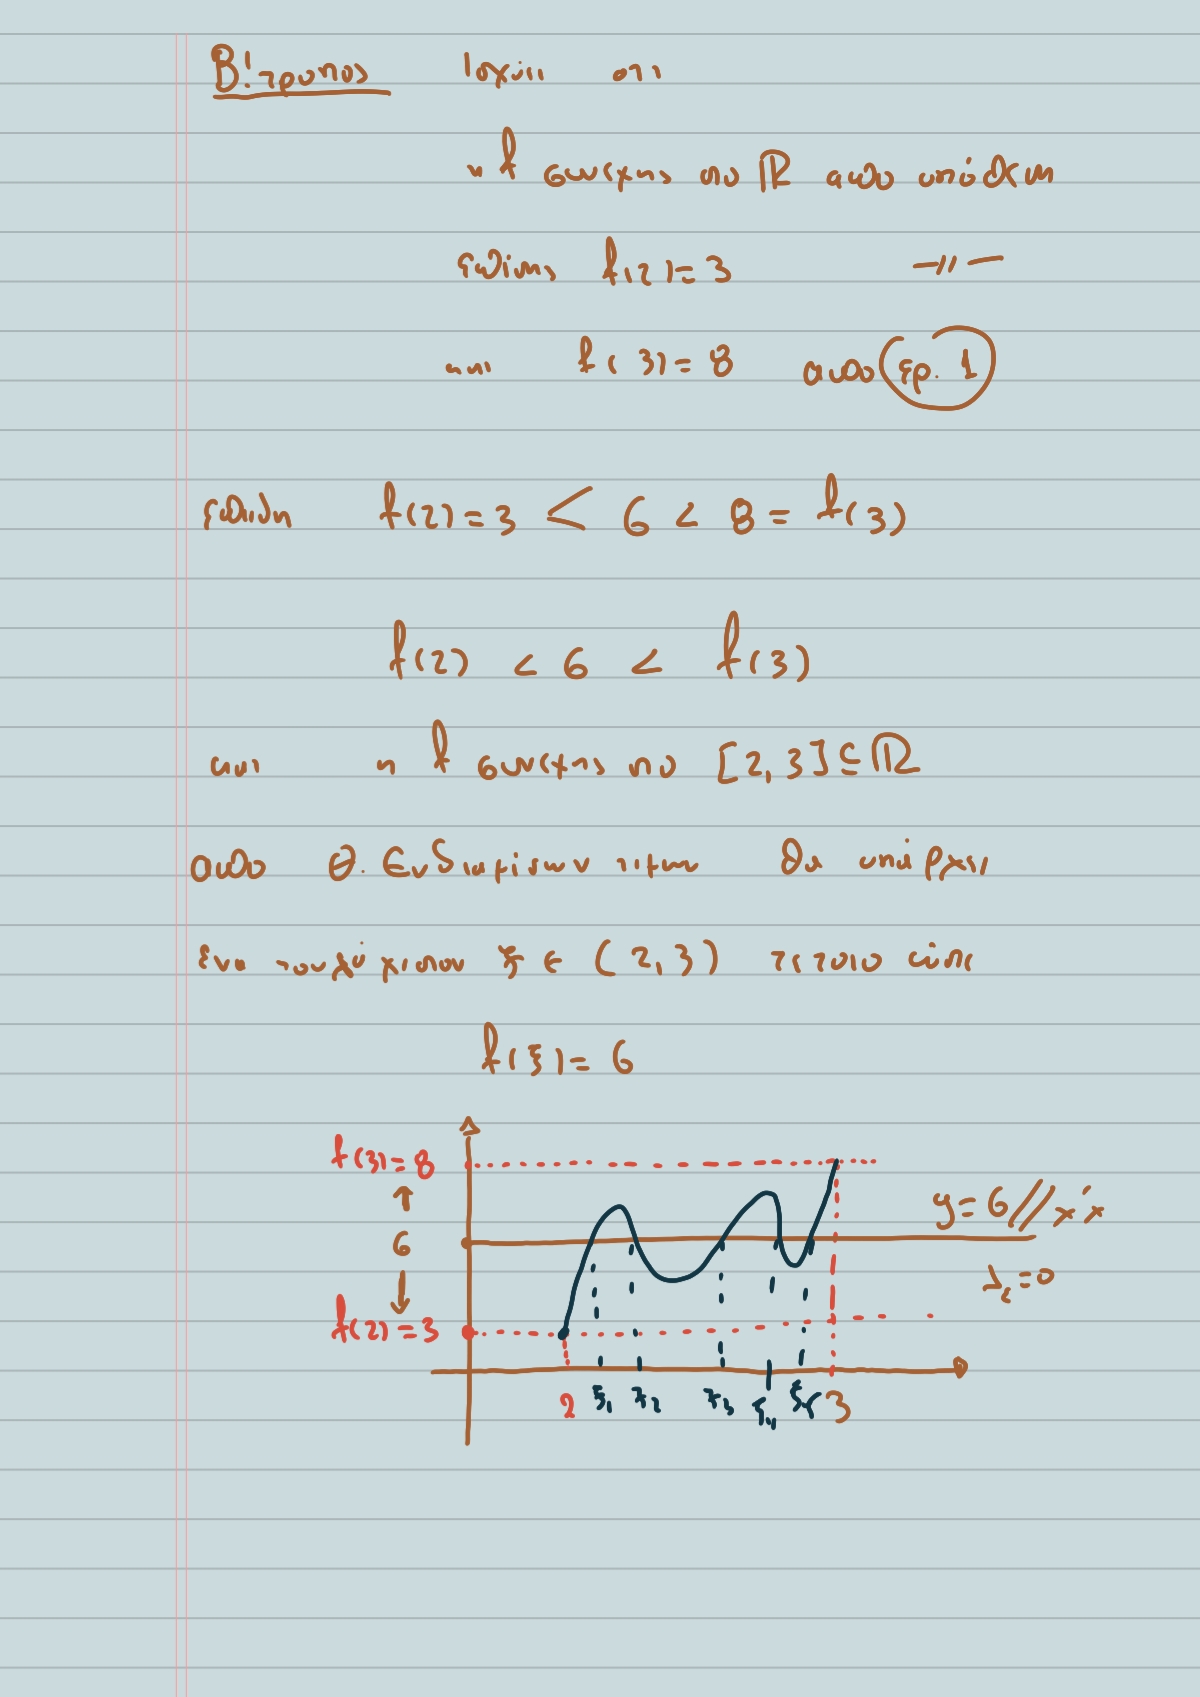 Β! τροπος Ισχύει οτι
η f συνεχης στο ℝ απο υπόθεση
επίσης f(2)=3 —//—
και f(3)=8 απο ερ. 1
επειδη f(2)=3 < 6 < 8 = f(3)
f(2) < 6 < f(3)
και η f συνεχης στο [2,3]⊆ℝ
απο Θ. Ενδιαμέσων τιμων θα υπάρχει
ένα τουλάχιστον ξ ∈ (2,3) τετοιο ώστε
f(ξ)=6
f(3)=8
6
f(2)=3
y=6//x'x
λε=0
2 ξ1 ξ2 ξ3 ξ4 ξ5 3